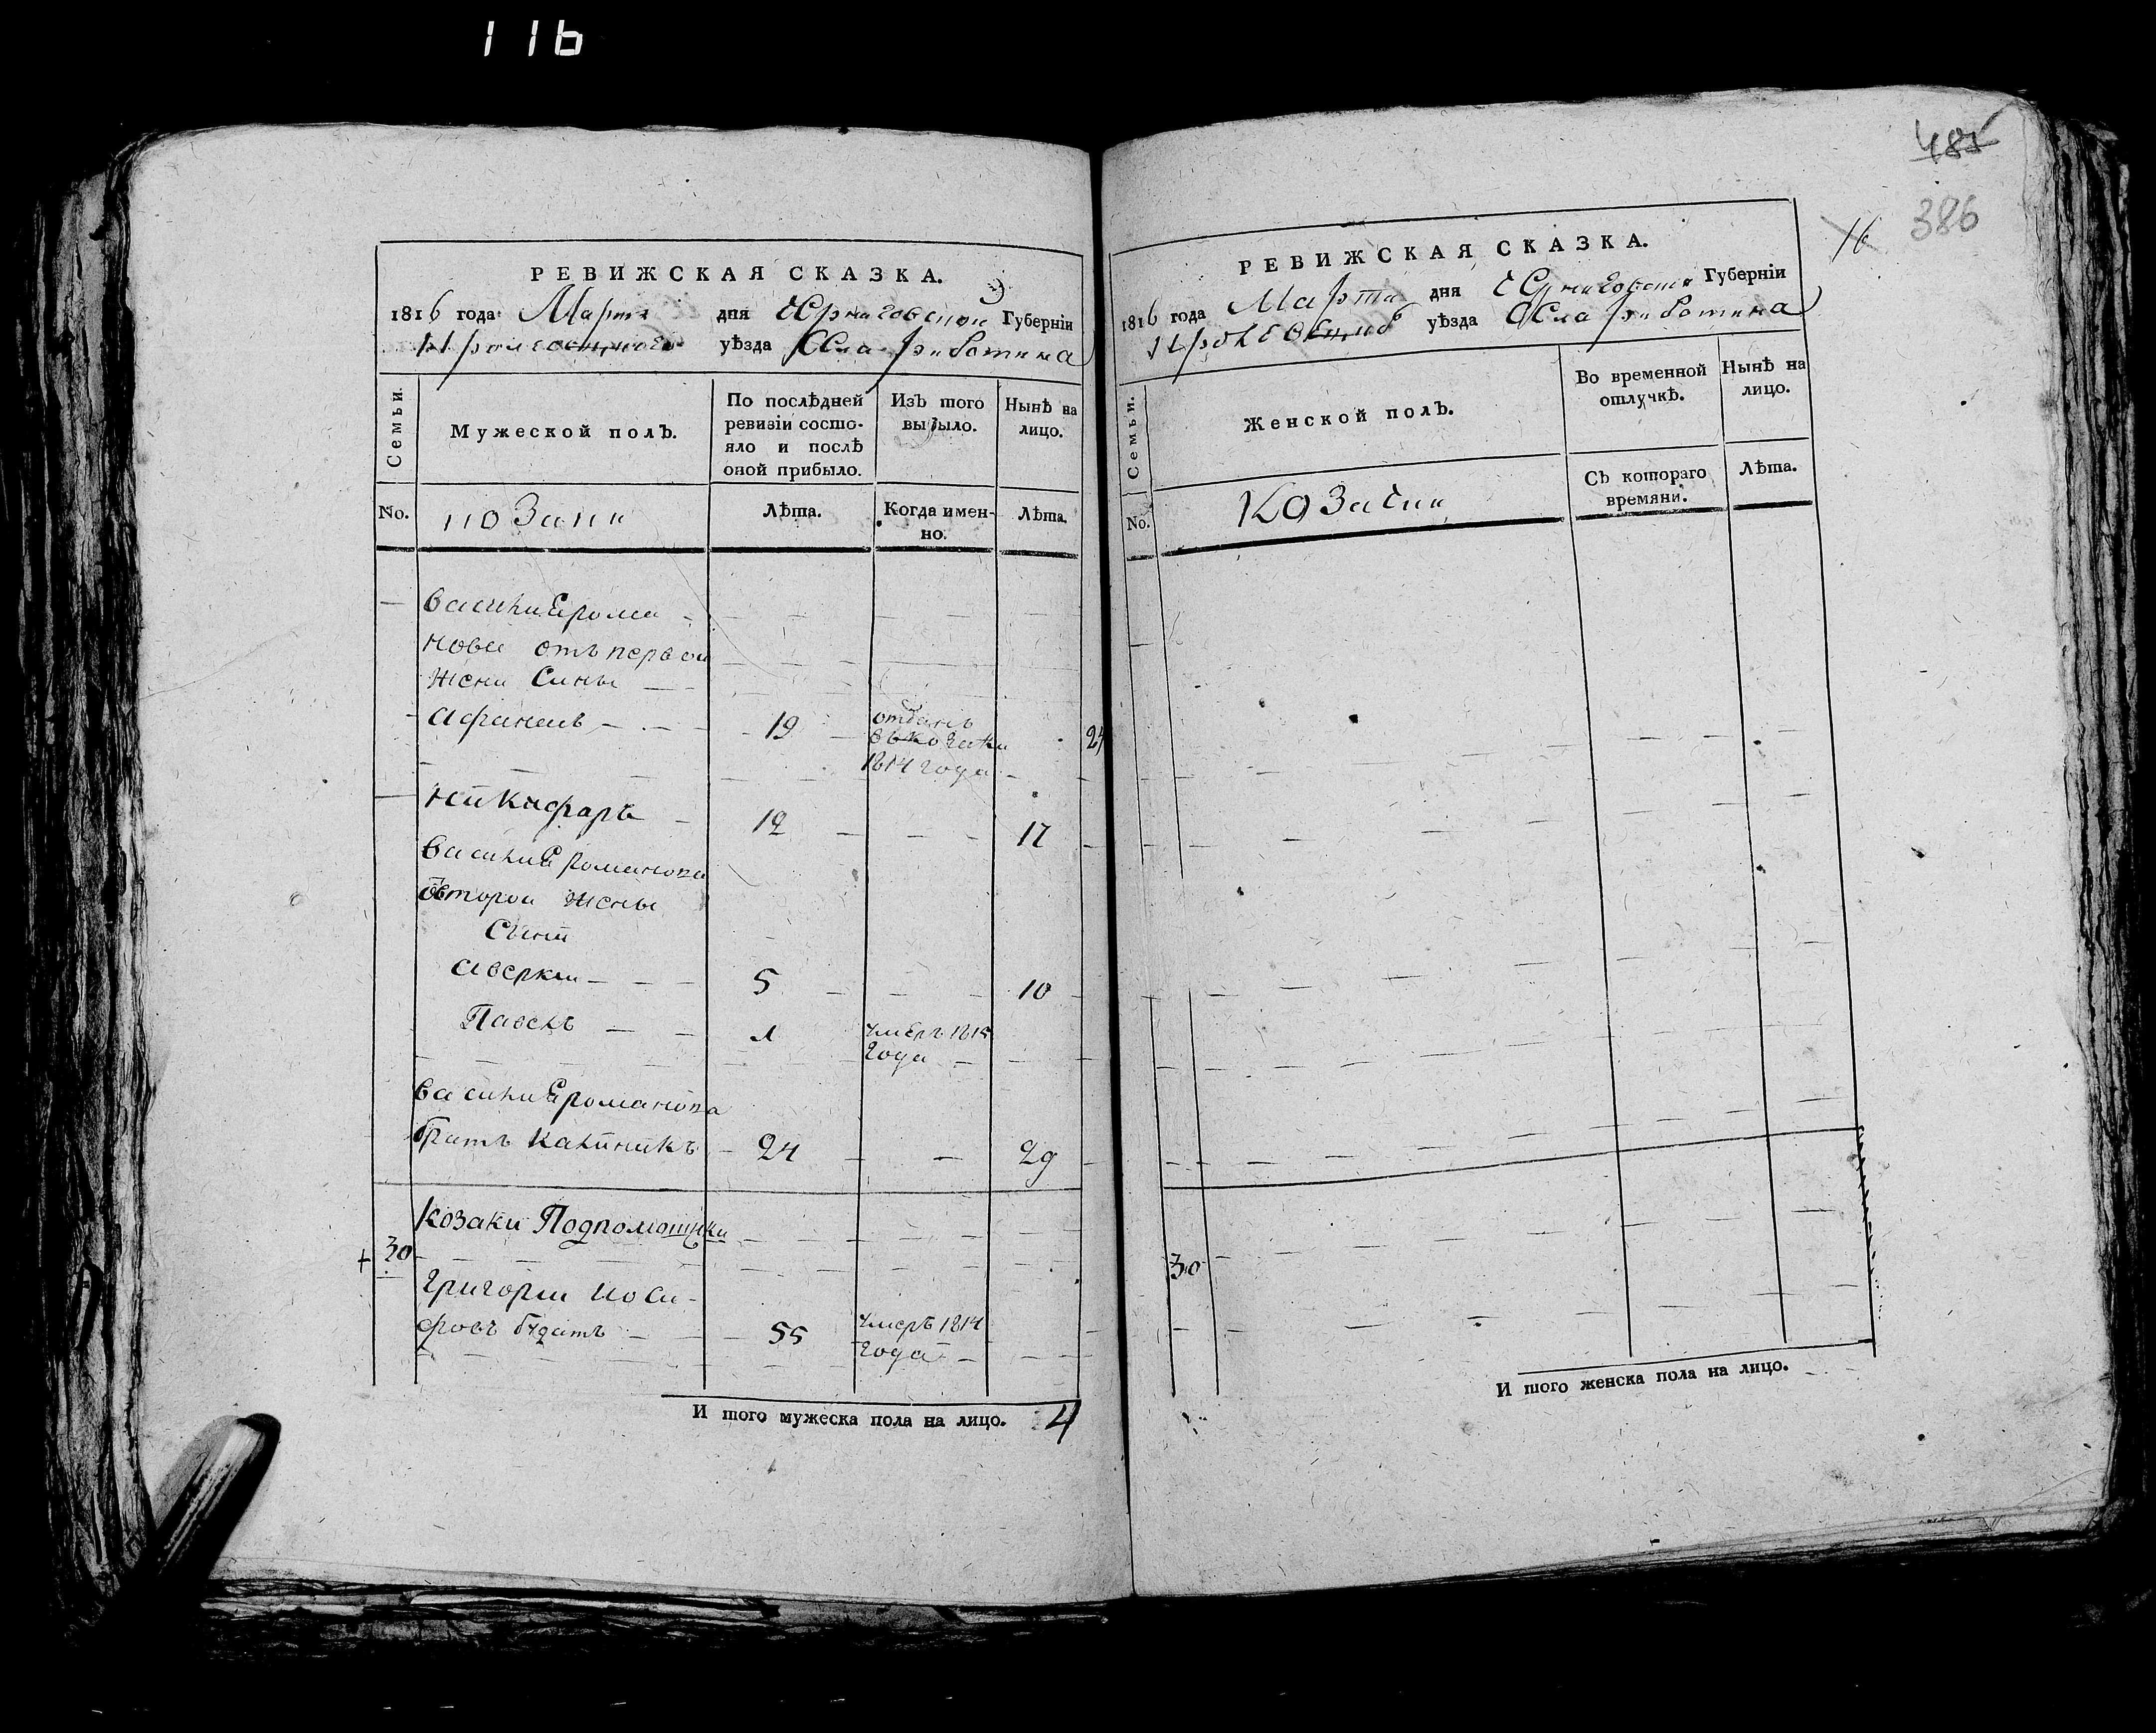 116
485
386
16
РЕВИЖСКАЯ СКАЗКА.
1816 года Марта дня Черниговской Губерніи
уѣзда Села риботина
Семьи.
Мужеской полъ.
По послѣдней ревизіи состо-
яло и послѣ
оной прибыло.
Изъ того
выбыло.
Нынѣ на
лицо.
No.
Козаки
Лѣта.
Когда имен-
но.
Лѣта.
василия рома
нова отъ первой
жени Сины
афанеи 19 отданъ
въ козаки
1814 года 24
никифаръ 12 17
василия романова
второй жены
Сыни
аверкии 5 10
Павелъ 1 умеръ 1815
года
василия романова
братъ калиникъ 24 29
козаки Подпомошники
30
григории иоси
фовъ будатъ 55 умеръ 1814
года
И того мужеска пола на лицо. 4
РЕВИЖСКАЯ СКАЗКА.
1816 года Марта дня Черниговской Губерніи
уѣзда Села риботина
Семьи.
Женской полъ.
Во временной
отлучкѣ.
Нынѣ на
лицо.
No.
Козачки
Съ котораго
времяни.
Лѣта.
30
И того женска пола на лицо.